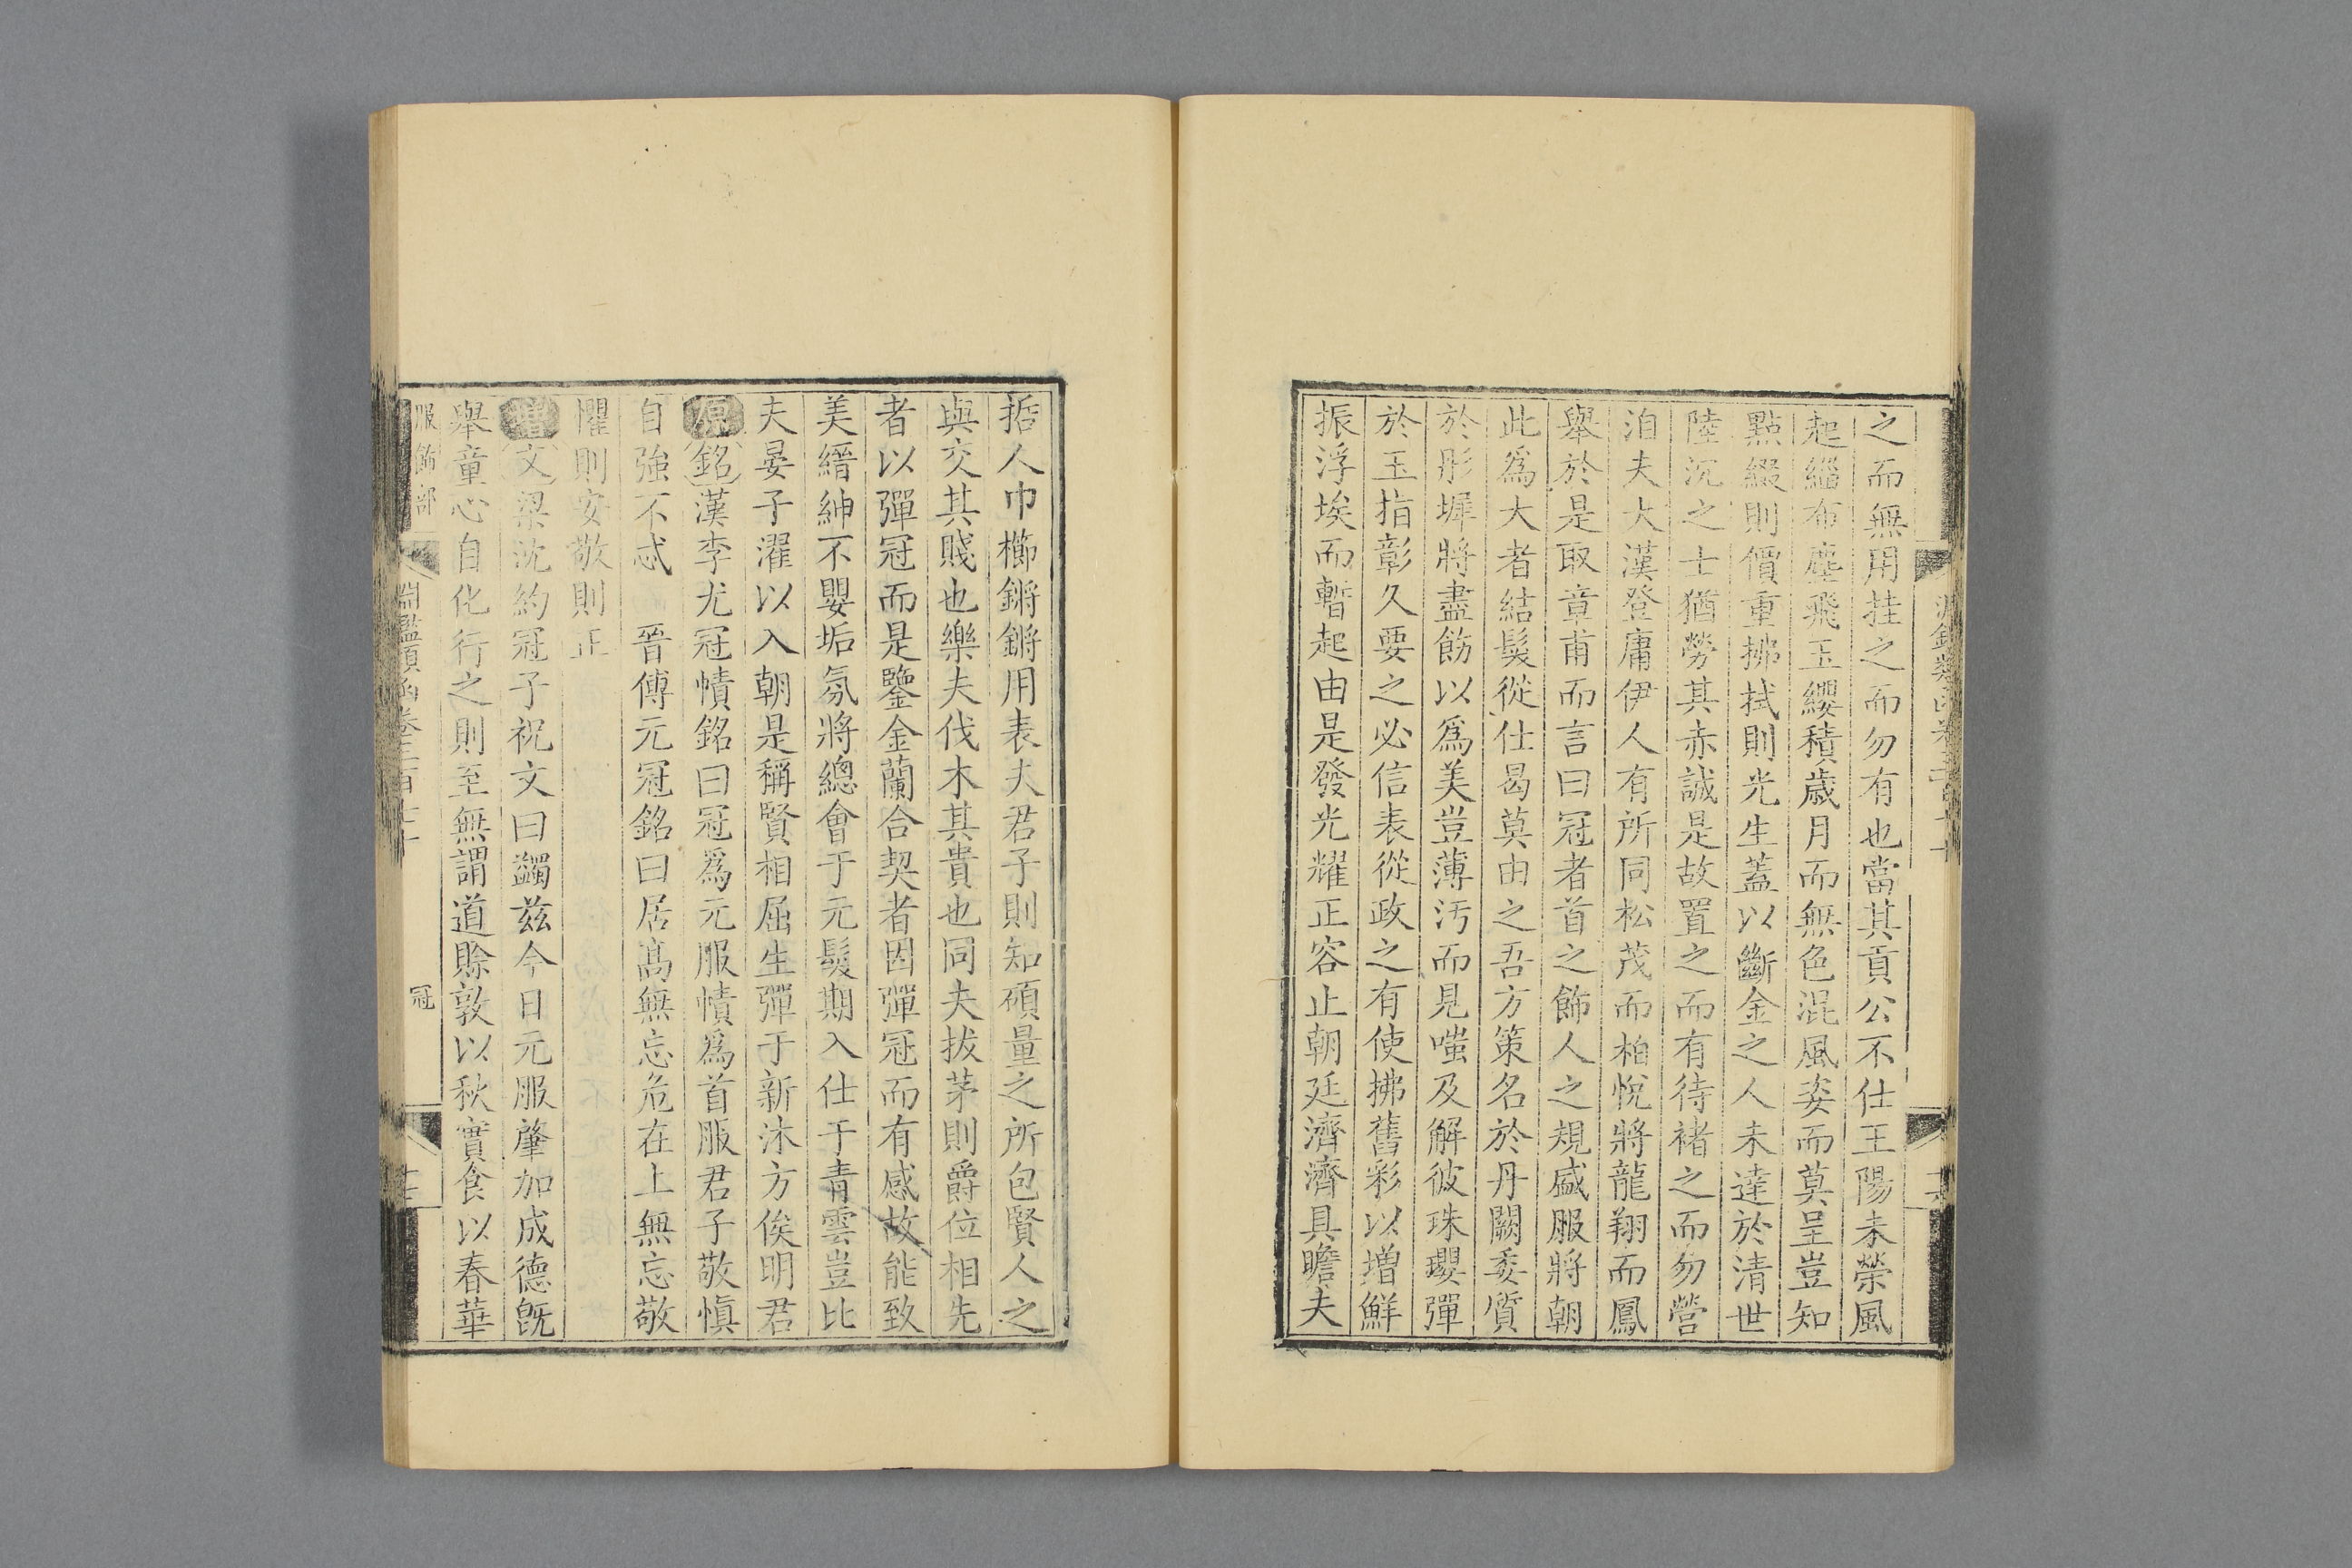 之而無用挂之而勿有也當其貢公不仕王陽未榮風
起緇布塵飛玉纓積歲月而無色混風姿而莫呈豈知
點綴則價重拂拭則光生蓋以斷金之人未達於清世
陸沉之士猶勞其赤誠是故置之而有待褚之而勿營
洎夫大漢登庸伊人有所同松茂而柏悅將龍翔而鳳
舉於是取章甫而言曰冠者首之飾人之規盛服將朝
此爲大者結髮從仕曷莫由之吾方策名於丹闕委質
於彤墀將盡飭以爲美豈薄汚而見嗤及解彼珠瓔彈
於玉指彰久要之必信表從政之有使拂舊彩以增鮮
振浮埃而暫起由是發光耀正容止朝廷濟濟具瞻夫
哲人巾櫛鏘鏘用表夫君子則知碩量之所包賢人之
與交其賤也樂夫伐木其貴也同夫拔茅則爵位相先
者以彈冠而是鑒金蘭合契者因彈冠而有感故能致
美縉紳不嬰垢氛將總會于元髮期入仕于青雲豈比
夫晏子濯以入朝是稱賢相屈生彈于新沐方俟明君
原銘漢李尤冠幘銘曰冠爲元服幘爲首服君子敬愼
自強不忒 晉傅元冠銘曰居高無忘危在上無忘敬
懼則安敬則正
增文梁沈約冠子祝文曰蠲茲今日元服肇加成德旣
舉童心自化行之則至無謂道賒敦以秋實食以春華
服飾部 淵鑑類函卷三百七十 冠